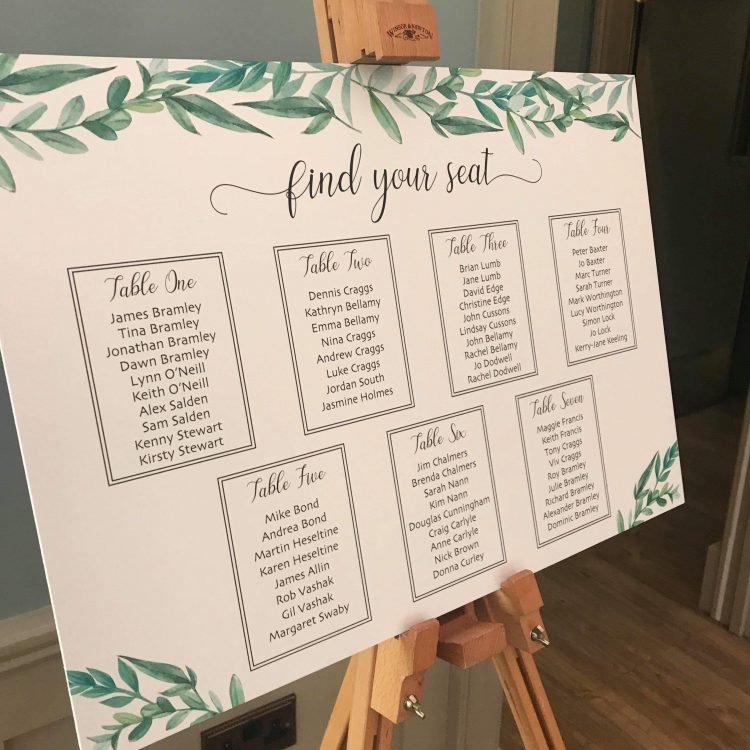 WINSOR & NEWTON
find your seat
Table One
James Bramley
Tina Bramley
Jonathan Bramley
Dawn Bramley
Lynn O'Neill
Keith O'Neill
Alex Salden
Sam Salden
Kenny Stewart
Kirsty Stewart
Table Two
Dennis Craggs
Kathryn Bellamy
Emma Bellamy
Nina Craggs
Andrew Craggs
Luke Craggs
Jordan South
Jasmine Holmes
Table Three
Brian Lumb
Jane Lumb
David Edge
Christine Edge
John Cussons
Lindsay Cussons
John Bellamy
Rachel Bellamy
Jo Dodwell
Rachel Dodwell
Table Four
Peter Baxter
Jo Baxter
Marc Turner
Sarah Turner
Mark Worthington
Lucy Worthington
Simon Lock
Jo Lock
Kerry-Jane Keeling
Table Five
Mike Bond
Andrea Bond
Martin Heseltine
Karen Heseltine
James Allin
Rob Vashak
Gil Vashak
Margaret Swaby
Table Six
Jim Chalmers
Brenda Chalmers
Sarah Nann
Kim Nann
Douglas Cunningham
Craig Carlyle
Anne Carlyle
Nick Brown
Donna Curley
Table Seven
Maggie Francis
Keith Francis
Tony Craggs
Viv Craggs
Roy Bramley
Julie Bramley
Richard Bramley
Alexander Bramley
Dominic Bramley